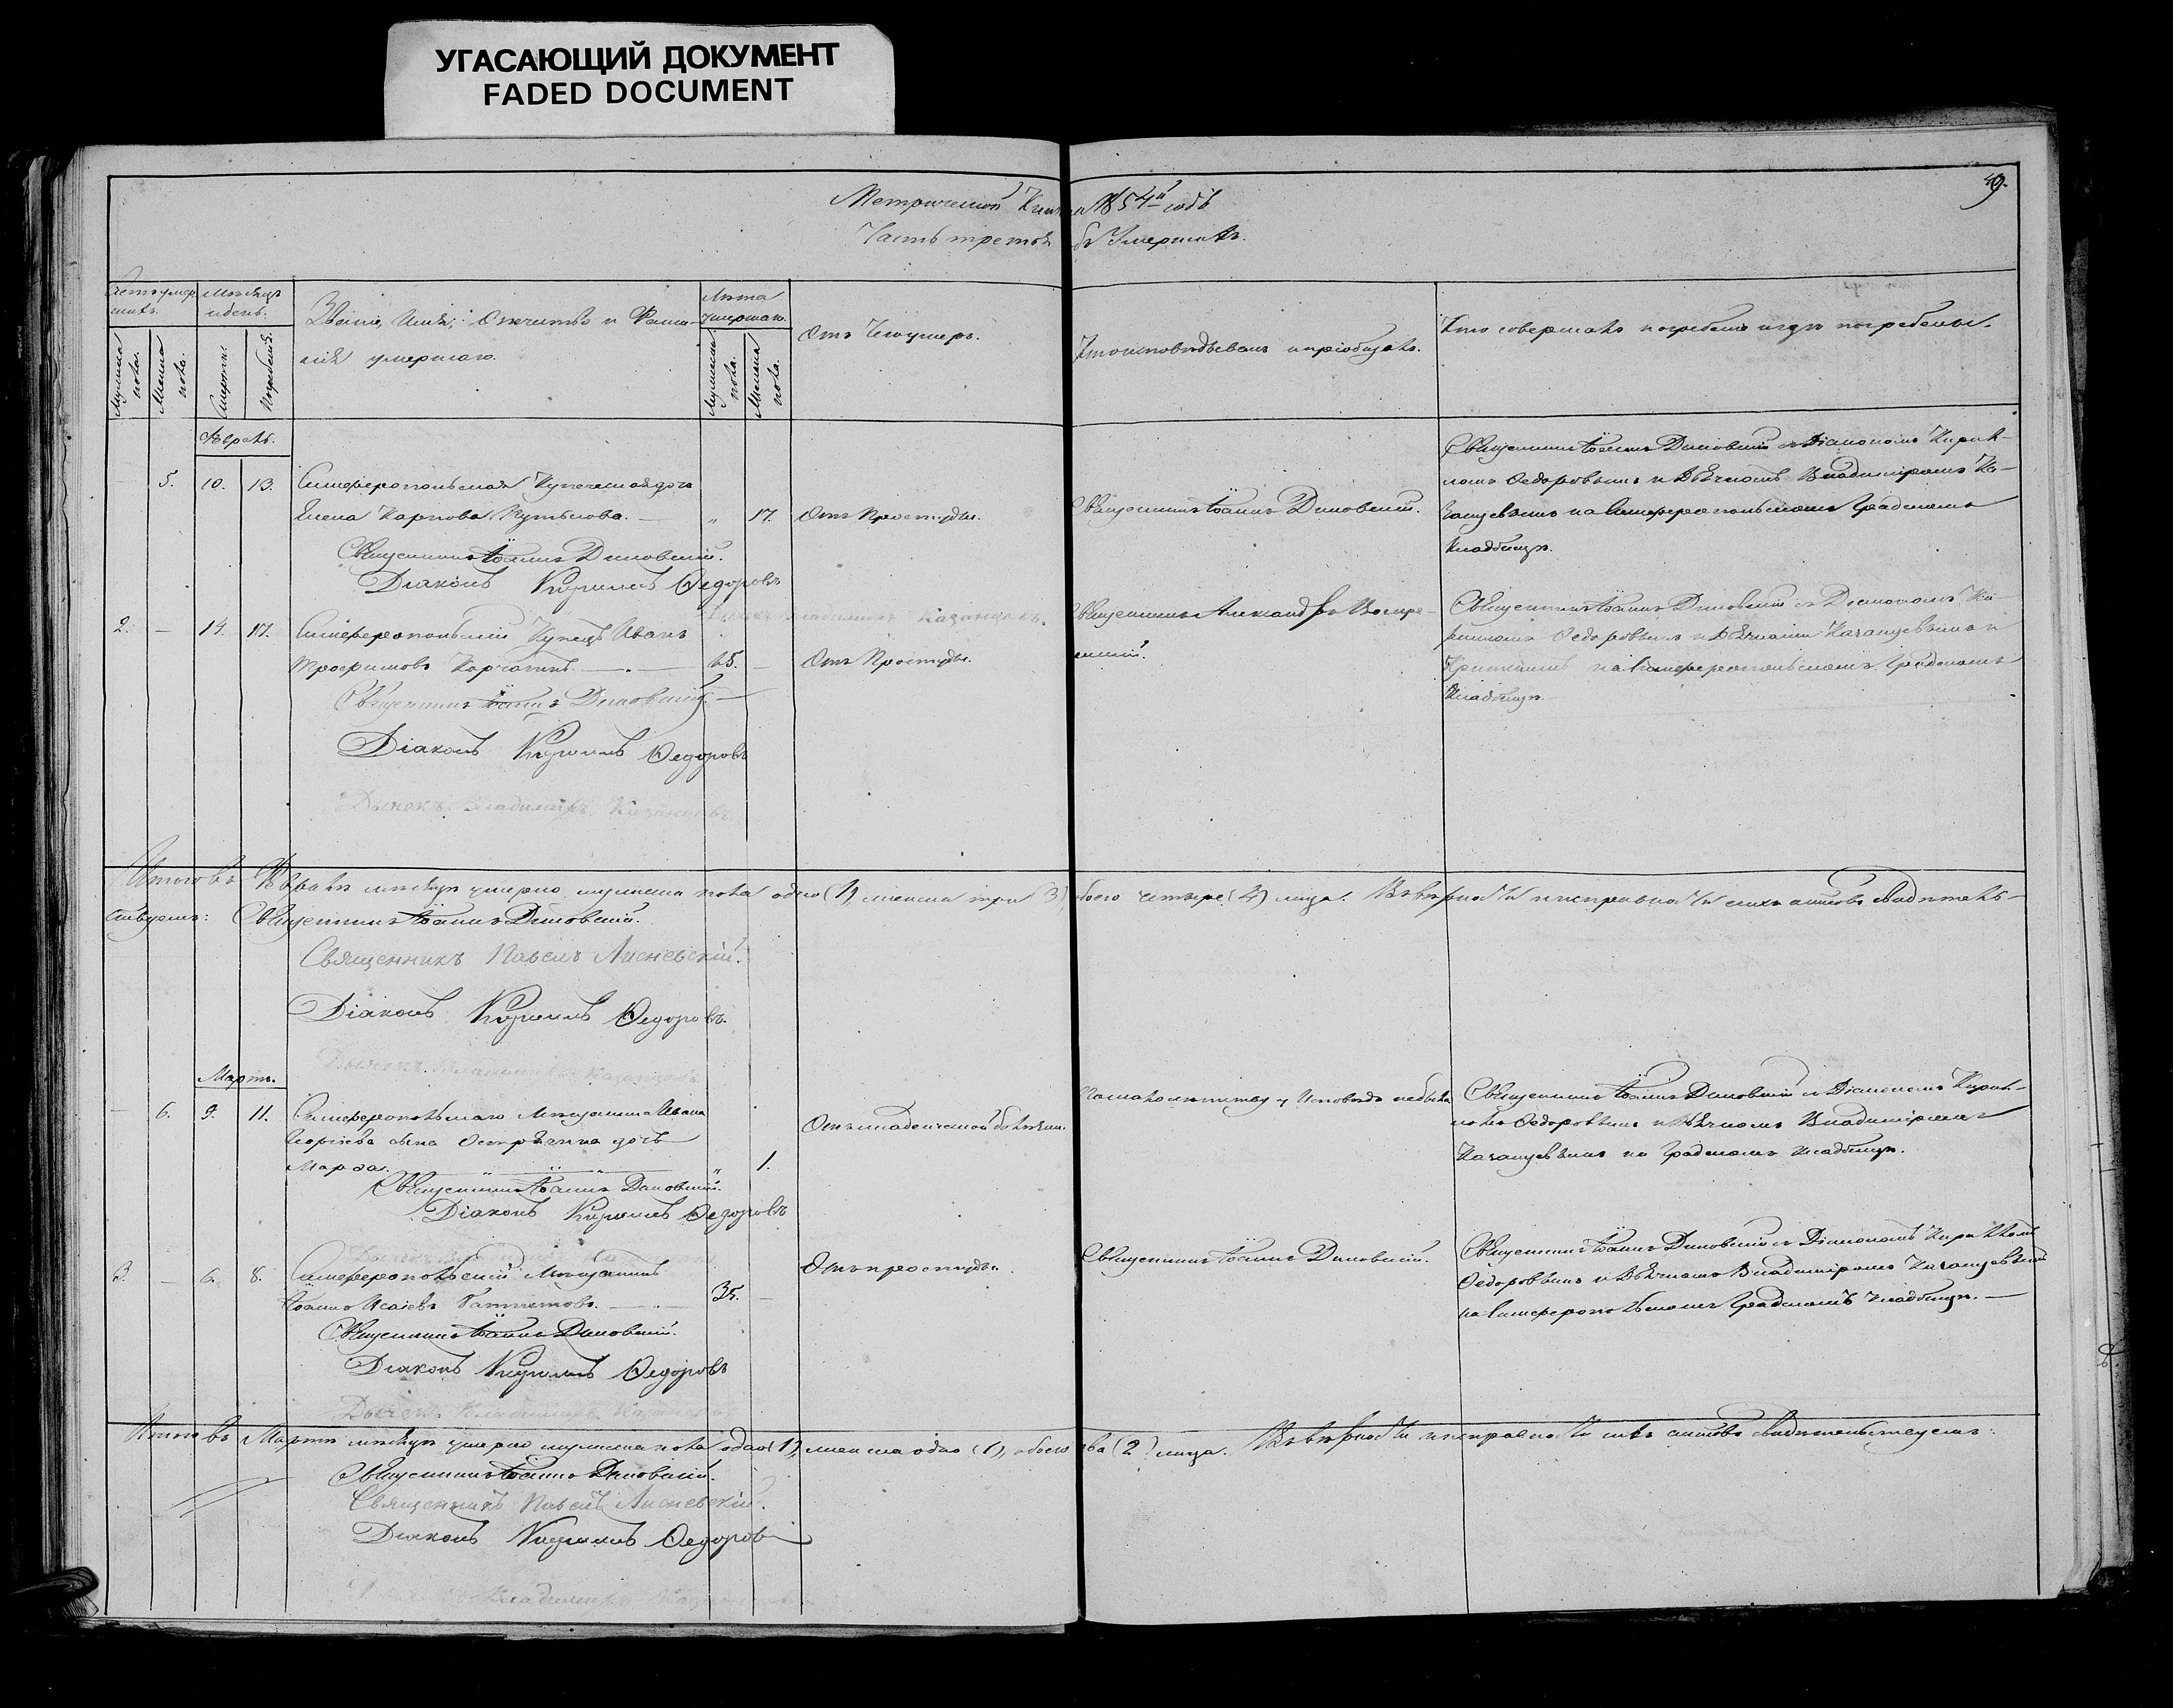 УГАСАЮЩИЙ ДОКУМЕНТ
FADED DOCUMENT
49.
Метрической Книги 1854й годъ
Часть третія объ Умершихъ.
Счетъ умер
шихъ.
Мѣсяцъ
и день.
Званіе, Имя, Отчество и Фами-
лія умершаго.
Лѣта
умершаго.
Отъ Чего умеръ.
Кто исповѣдывалъ и пріобщалъ.
Кто совершалъ погребеніе и гдѣ погребены.
Мужеска
пола.
Женска
пола.
Смерти.
Погребенія.
Мужеска
пола.
Женска
пола.
Февраль.
5. 10. 13. Симферопольская Купеческая дочь
Елена Карпова — „ 17. Отъ Простуды.
Священникъ Іоаннъ Диковскій.
Священникъ Іоаннъ Диковскій съ Діакономъ Кирил-
ломъ Федоровымъ и Дьячкомъ Владиміромъ Ка-
занцевымъ на Симферопольскомъ Градскомъ
Кладбищѣ.
Священникъ Іоаннъ Диковскій.
Діаконъ Кириллъ Федоровъ
Дьячекъ Владиміръ Казанцовъ.
2. — 14. 17. Симферопольскій Купецъ Иванъ
Трофимовъ — 65. — Отъ Простуды.
Священникъ Александръ
Священникъ Іоаннъ Диковскій съ Діакономъ Ки-
рилломъ Федоровымъ и Дьячками Казанцевымъ и
на Симферопольскомъ Градскомъ
Кладбищѣ.
Священникъ Іоаннъ Диковскій. —
Діаконъ Кириллъ Федоровъ
Дьячекъ Владиміръ Казанцовъ
Итого въ Февралѣ мѣсяцѣ умерло мужеска пола одно (1), женска три (3), обоего четыре (4) лица. Въ вѣрности и исправности сихъ актовъ свидѣтель-
ствуемъ: Священникъ Іоаннъ Диковскій.
Священникъ Павелъ Лисневскій.
Діаконъ Кириллъ Федоровъ.
Дьячекъ Владиміръ Казанцовъ
Мартъ.
— 6. 9. 11. Симферопольскаго Мѣщанина Ивана
сына дочь
Марѳа. — „ 1.
Отъ младенческой болѣзни.
По малолѣтству у Исповѣди не была
Священникъ Іоаннъ Диковскій съ Діакономъ Кирил-
ломъ Федоровымъ и Дьячкомъ Владиміромъ
Казанцевымъ на Градскомъ Кладбищѣ.
Священникъ Іоаннъ Диковскій.
Діаконъ Кириллъ Федоровъ
3. — 6. 8. Симферопольскій Мѣщанинъ
Іоаннъ Исаіевъ — 35. —
Отъ простуды.
Священникъ Іоаннъ Диковскій.
Священникъ Іоаннъ Диковскій съ Діакономъ Кирилломъ
Федоровымъ и Дьячкомъ Владиміромъ Казанцевымъ
на Симферопольскомъ Градскомъ Кладбищѣ. —
Священникъ Іоаннъ Диковскій.
Діаконъ Кириллъ Федоровъ
Дьячекъ Владиміръ Казанцовъ
Итого въ Мартѣ мѣсяцѣ умерло мужеска пола одно (1), женска одно (1), обоего два (2) лица. Въ вѣрности и исправности сихъ актовъ свидѣтельствуемъ:
Священникъ Іоаннъ Диковскій.
Священникъ Павелъ Лисневскій.
Діаконъ Кириллъ Федоровъ
Владиміръ